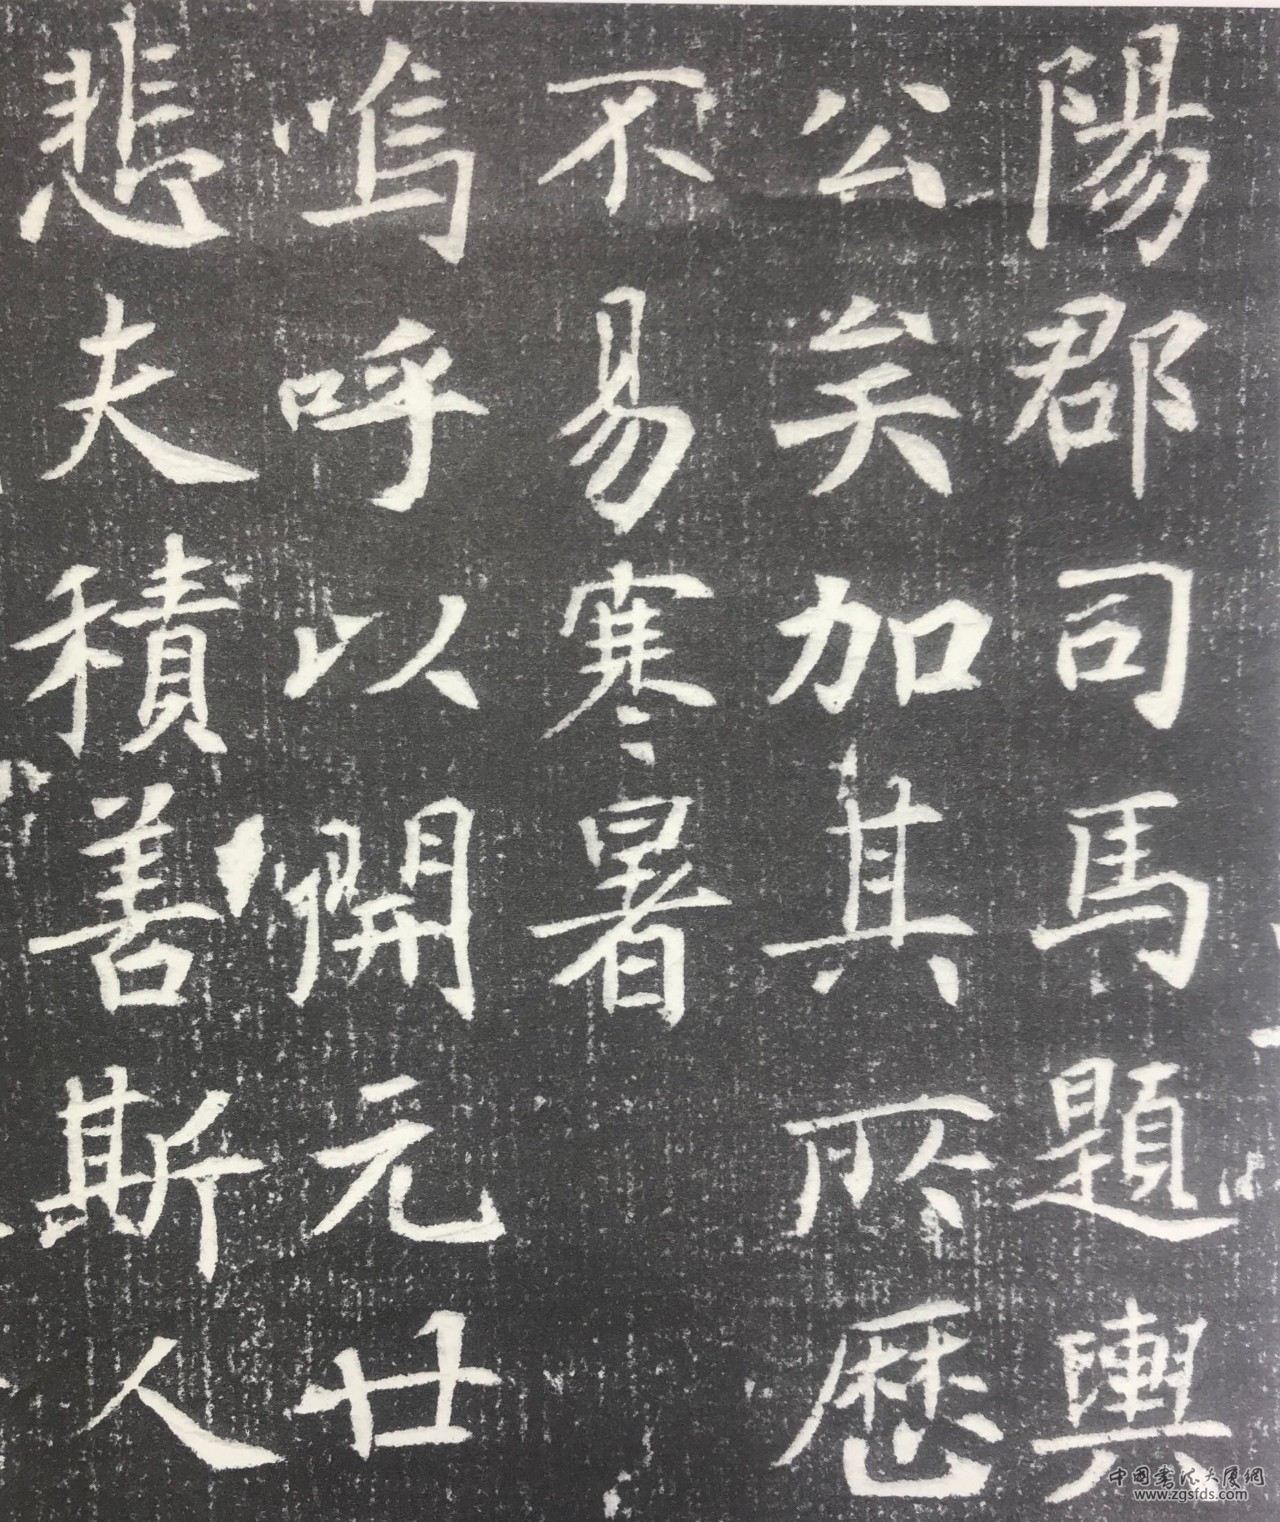 陽郡司馬題輿
公矣加其所歷
不易寒暑
嗚呼以開元廿
悲夫積善斯人
中國書法大廈網
www.zgsfds.com